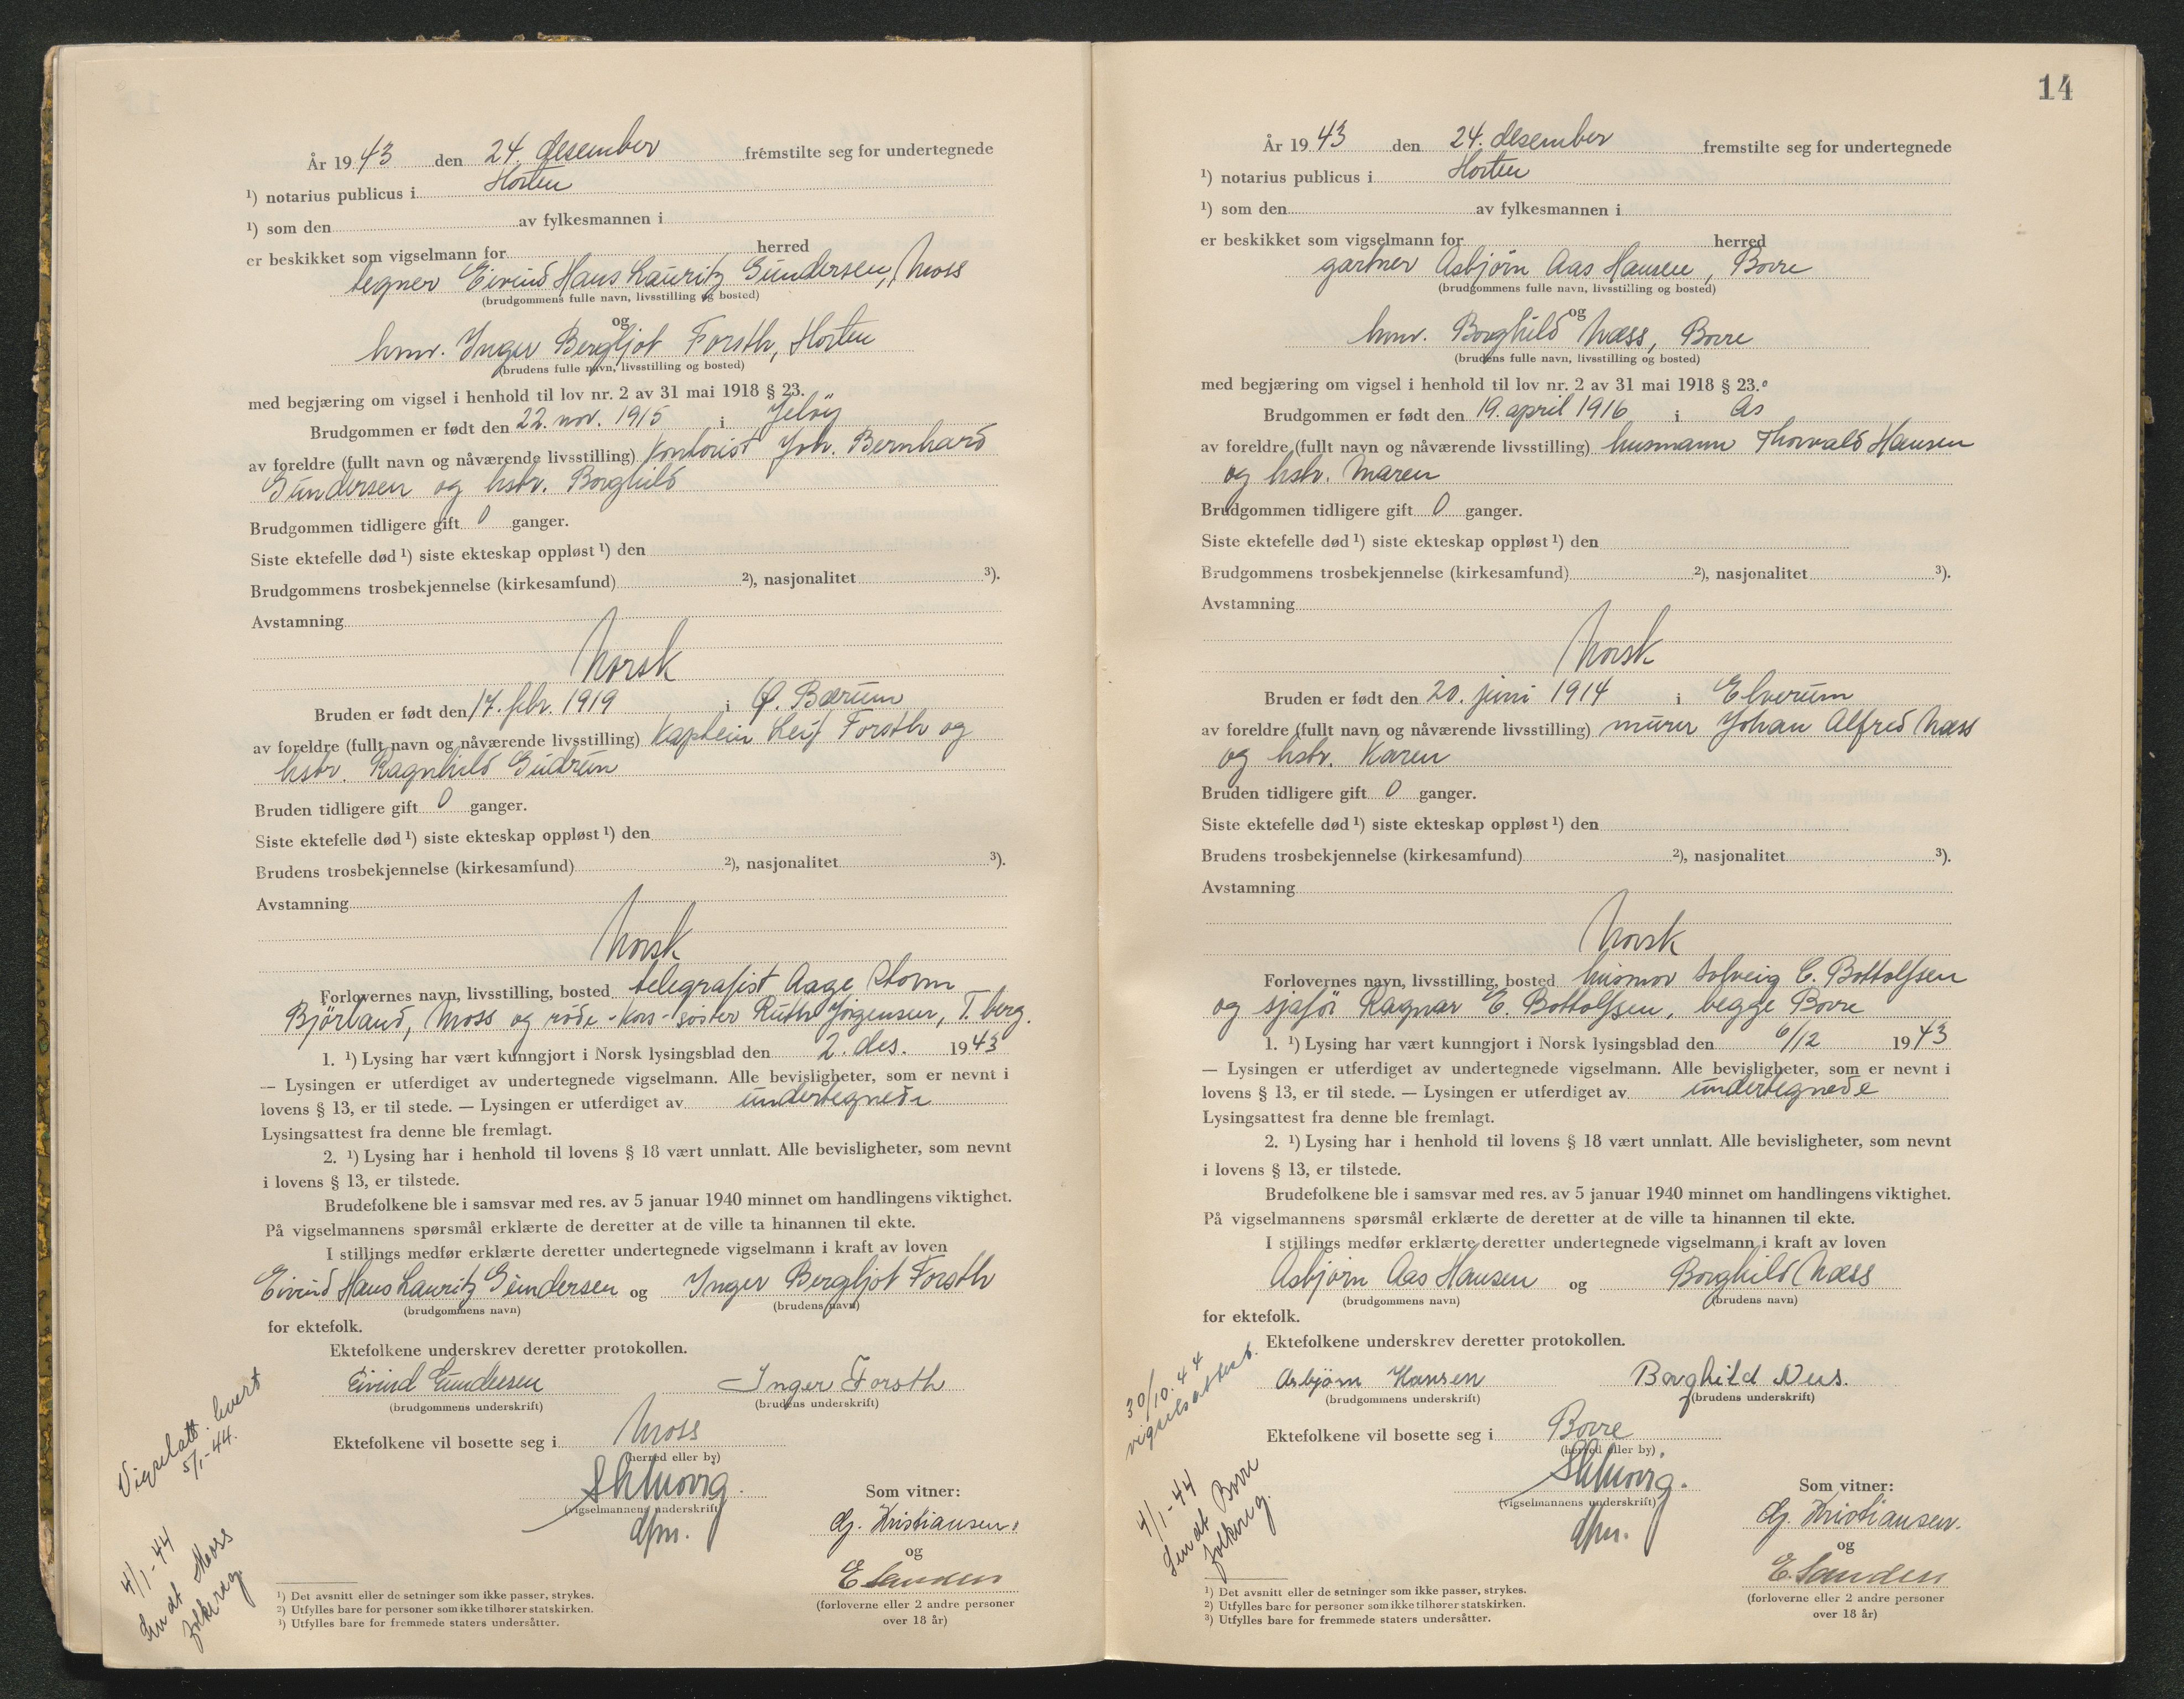 År 1943 den 24. desember fremstilte seg for undertegnede
¹) notarius publicus i Horten
¹) som den av fylkesmannen i
er beskikket som vigselmann for herred
tegner Eivind Hans Lauritz Gundersen, Moss
(brudgommens fulle navn, livsstilling og bosted)
og
hmv. Inger Bergljot Forsth, Horten
(brudens fulle navn, livsstilling og bosted)
med begjæring om vigsel i henhold til lov nr. 2 av 31 mai 1918 § 23.
Brudgommen er født den 22. nov. 1915 i Jeløy
av foreldre (fullt navn og nåværende livsstilling) kontorist Joh. Bernhard
Gundersen og hstr. Borghild
Brudgommen tidligere gift 0 ganger.
Siste ektefelle død ¹) siste ekteskap oppløst ¹) den
Brudgommens trosbekjennelse (kirkesamfund) ²), nasjonalitet ³).
Avstamning
Norsk
Bruden er født den 17. febr. 1919 i Ø. Bærum
av foreldre (fullt navn og nåværende livsstilling) Kaptein Leif Forsth og
hstr. Ragnhild Gudrun
Bruden tidligere gift 0 ganger.
Siste ektefelle død ¹) siste ekteskap oppløst ¹) den
Brudens trosbekjennelse (kirkesamfund) ²), nasjonalitet ³).
Avstamning
Norsk
Forlovernes navn, livsstilling, bosted telegrafist Aage Storm
Björland, Moss og röde-kors-søster Ruth Jörgensen, T.berg.
1. ¹) Lysing har vært kunngjort i Norsk lysingsblad den 2. des. 1943
— Lysingen er utferdiget av undertegnede vigselmann. Alle bevisligheter, som er nevnt i
lovens § 13, er til stede. — Lysingen er utferdiget av undertegnede
Lysingsattest fra denne ble fremlagt.
2. ¹) Lysing har i henhold til lovens § 18 vært unnlatt. Alle bevisligheter, som nevnt
i lovens § 13, er tilstede.
Brudefolkene ble i samsvar med res. av 5 januar 1940 minnet om handlingens viktighet.
På vigselmannens spørsmål erklærte de deretter at de ville ta hinannen til ekte.
I stillings medfør erklærte deretter undertegnede vigselmann i kraft av loven
Eivind Hans Lauritz Gundersen og Inger Bergljot Forsth
(brudgommens navn) (brudens navn)
for ektefolk.
Ektefolkene underskrev deretter protokollen.
Eivind Gundersen Inger Forsth
(brudgommens underskrift) (brudens underskrift)
Ektefolkene vil bosette seg i Moss
(herred eller by)
(vigselmannens underskrift)
dfm.
Som vitner:
Kristiansen.
og
E Sanden
(forloverne eller 2 andre personer
over 18 år)
Vigselatt. hvert
5/1-44.
4/1-44
Sendt Moss
folkereg.
¹) Det avsnitt eller de setninger som ikke passer, strykes.
²) Utfylles bare for personer som ikke tilhører statskirken.
³) Utfylles bare for fremmede staters undersåtter.
14
År 1943 den 24. desember fremstilte seg for undertegnede
¹) notarius publicus i Horten
¹) som den av fylkesmannen i
er beskikket som vigselmann for herred
gartner Asbjørn Aas Hansen, Borre
(brudgommens fulle navn, livsstilling og bosted)
og
hmv. Borghild Næss, Borre
(brudens fulle navn, livsstilling og bosted)
med begjæring om vigsel i henhold til lov nr. 2 av 31 mai 1918 § 23.
Brudgommen er født den 19. april 1916 i Ås
av foreldre (fullt navn og nåværende livsstilling) husmann Thorvald Hansen
og hstr. Maren
Brudgommen tidligere gift 0 ganger.
Siste ektefelle død ¹) siste ekteskap oppløst ¹) den
Brudgommens trosbekjennelse (kirkesamfund) ²), nasjonalitet ³).
Avstamning
Norsk
Bruden er født den 20. juni 1914 i Elverum
av foreldre (fullt navn og nåværende livsstilling) murer Johan Alfred Næss
og hstr. Karen
Bruden tidligere gift 0 ganger.
Siste ektefelle død ¹) siste ekteskap oppløst ¹) den
Brudens trosbekjennelse (kirkesamfund) ²), nasjonalitet ³).
Avstamning
Norsk
Forlovernes navn, livsstilling, bosted husmor Solveig C. Bottolfsen
og sjåför Ragnar E. Bottolfsen, begge Borre
1. ¹) Lysing har vært kunngjort i Norsk lysingsblad den 6/12 1943
— Lysingen er utferdiget av undertegnede vigselmann. Alle bevisligheter, som er nevnt i
lovens § 13, er til stede. — Lysingen er utferdiget av undertegnede
Lysingsattest fra denne ble fremlagt.
2. ¹) Lysing har i henhold til lovens § 18 vært unnlatt. Alle bevisligheter, som nevnt
i lovens § 13, er tilstede.
Brudefolkene ble i samsvar med res. av 5 januar 1940 minnet om handlingens viktighet.
På vigselmannens spørsmål erklærte de deretter at de ville ta hinannen til ekte.
I stillings medfør erklærte deretter undertegnede vigselmann i kraft av loven
Asbjørn Aas Hansen og Borghild Næss
(brudgommens navn) (brudens navn)
for ektefolk.
Ektefolkene underskrev deretter protokollen.
Asbjørn Hansen Borghild Nes.
(brudgommens underskrift) (brudens underskrift)
Ektefolkene vil bosette seg i Borre
(herred eller by)
(vigselmannens underskrift)
dfm.
Som vitner:
Kristiansen.
og
E. Sanden
(forloverne eller 2 andre personer
over 18 år)
30/10.44
vigselsattest.
4/1-44
Sendt Borre
folkereg.
¹) Det avsnitt eller de setninger som ikke passer, strykes.
²) Utfylles bare for personer som ikke tilhører statskirken.
³) Utfylles bare for fremmede staters undersåtter.